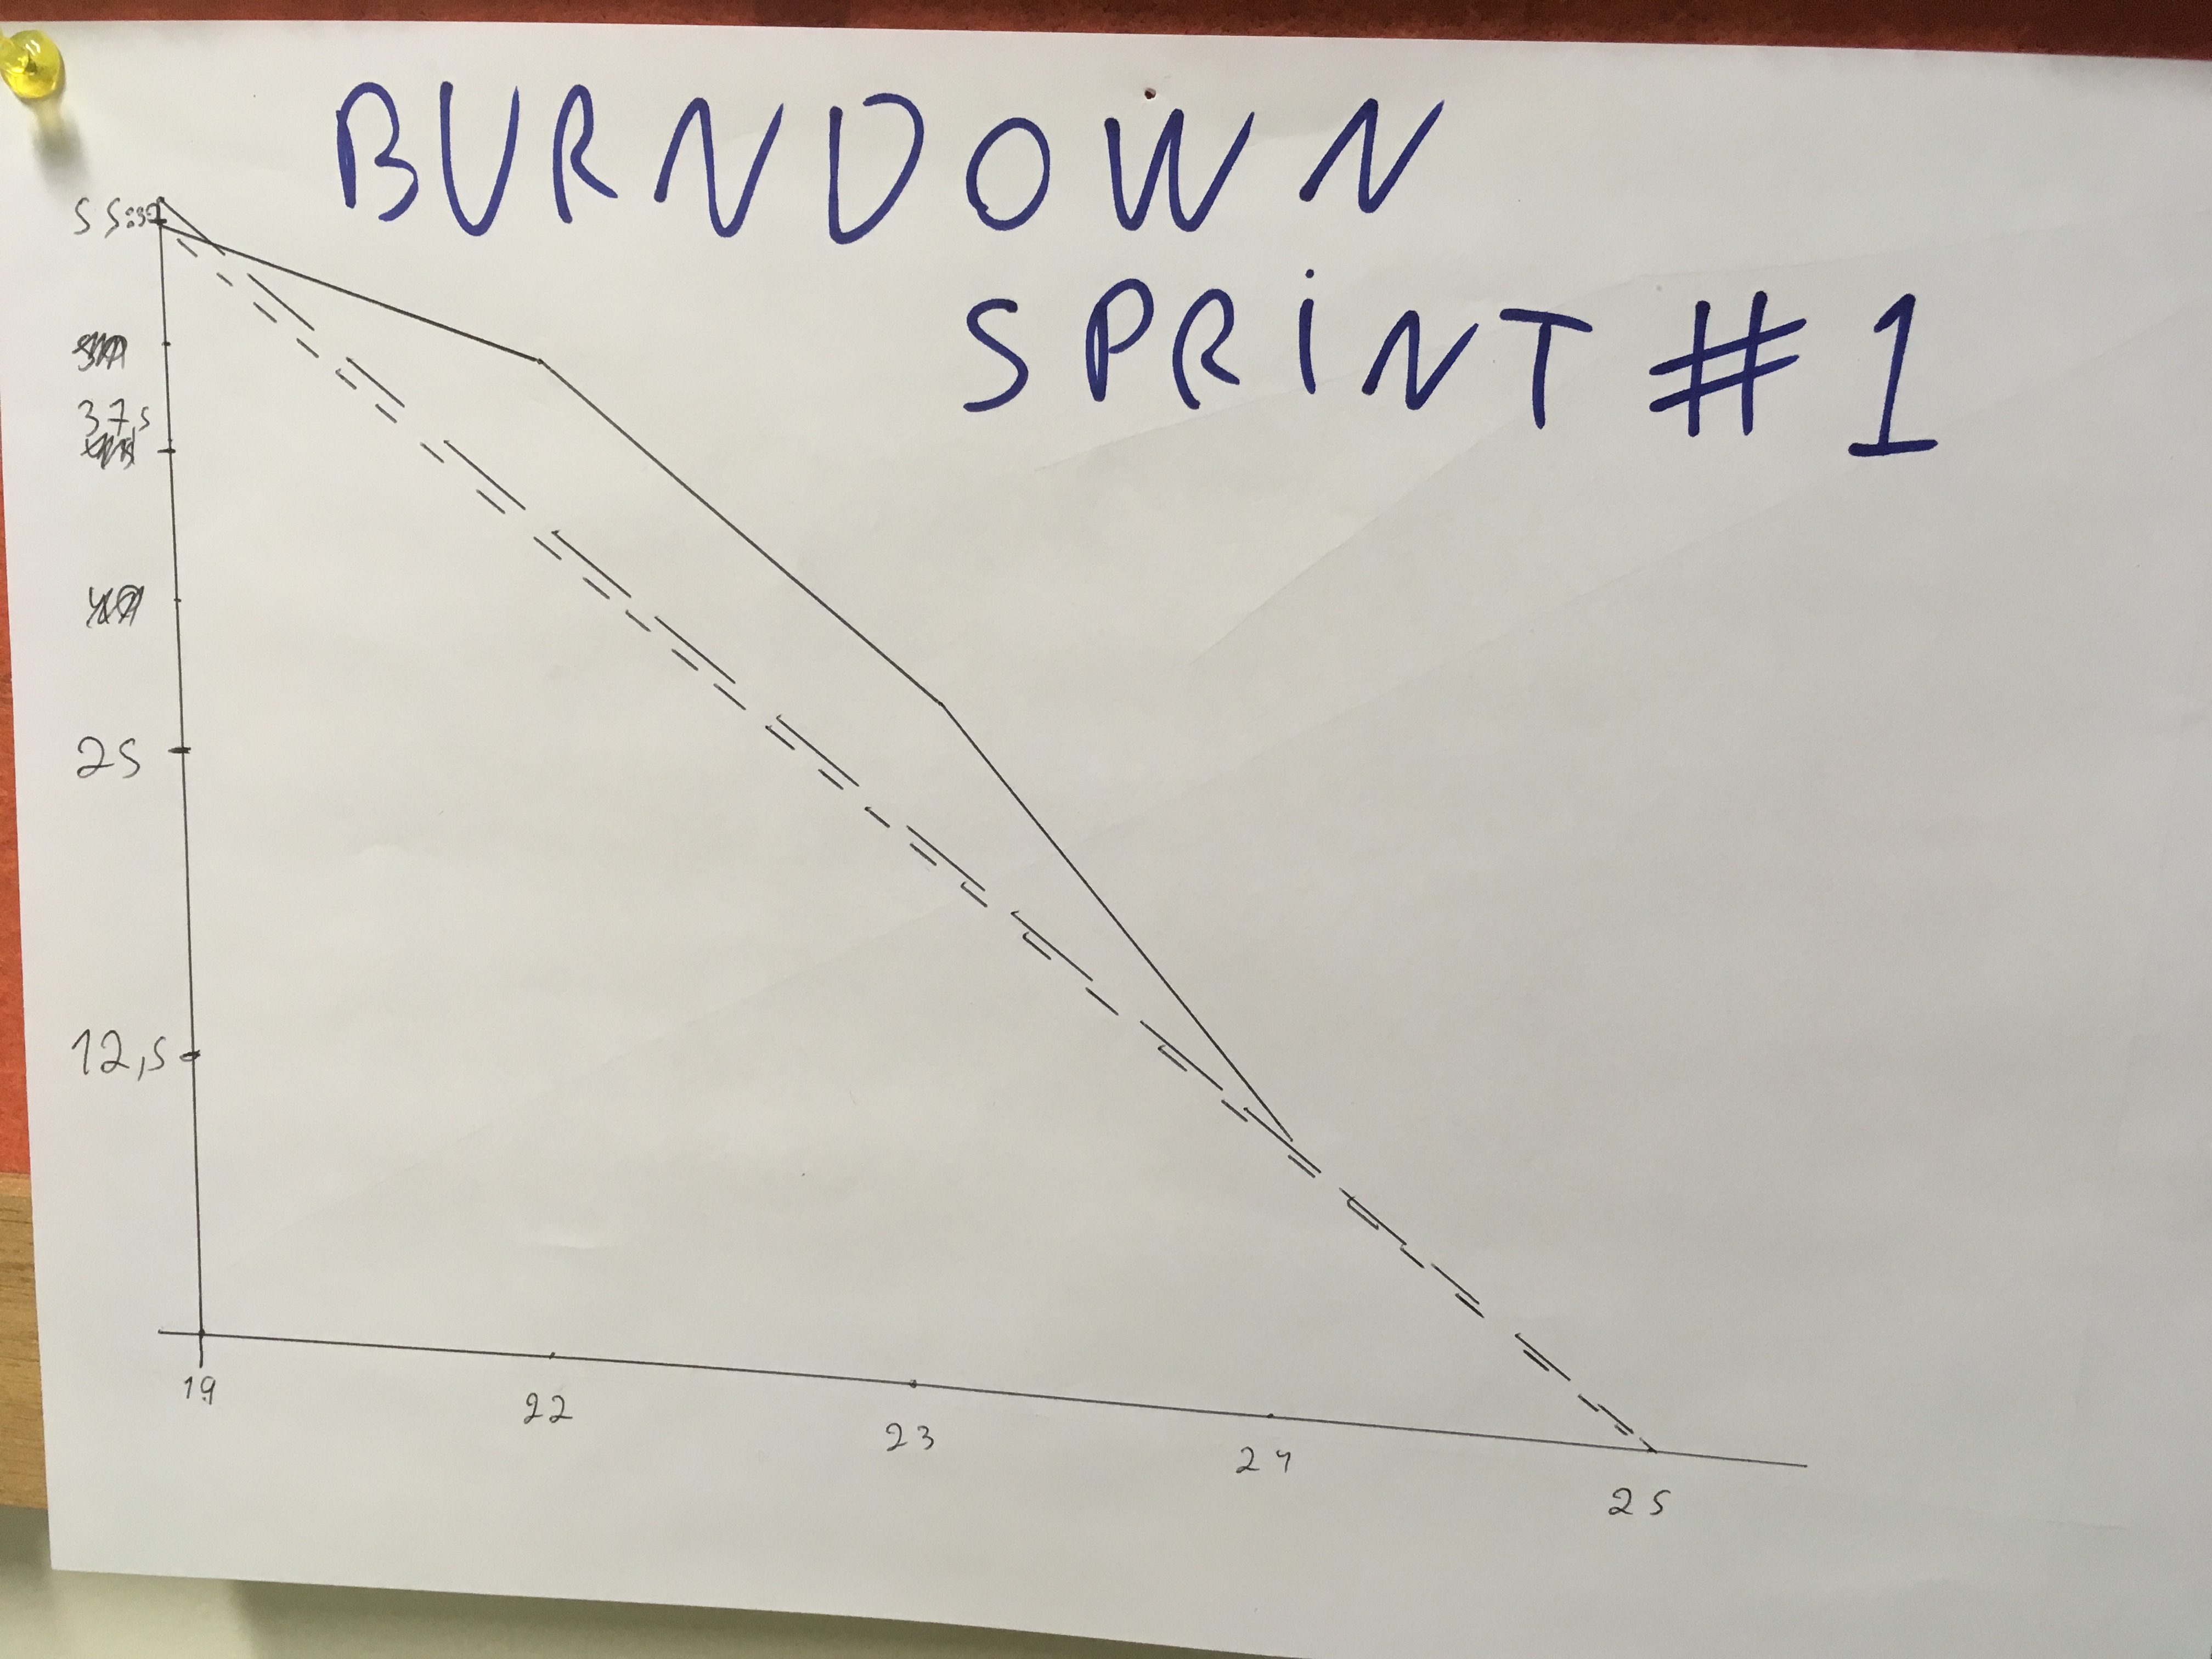 BURNDOWN
SPRINT #1
37,5
25
12,5
19
22
23
24
25